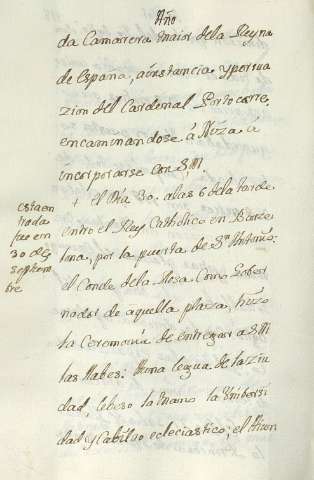 Año
da Camarera maior dela Reyna
de España, aÿnstancia ypersua
zion del Cardenal Portocarre.
encaminandose â Niza â
incorporarse con S,M.
+ el Dia 30. alas 6 dela tarde
entro el Rey Catholico en Barce
lona, por la puerta de Sn Antonio:
el Conde dela Rosa. Como Gober
nador de aquella plaza, hizo
la Ceremonia de entregar a S,M
las llabes: Vna legua de la ziu
dad, lebeso la mano la Vnibersi
dad y Cabildo eclesiastico; el
esta en
trada
fue en
30 de
septiem
bre